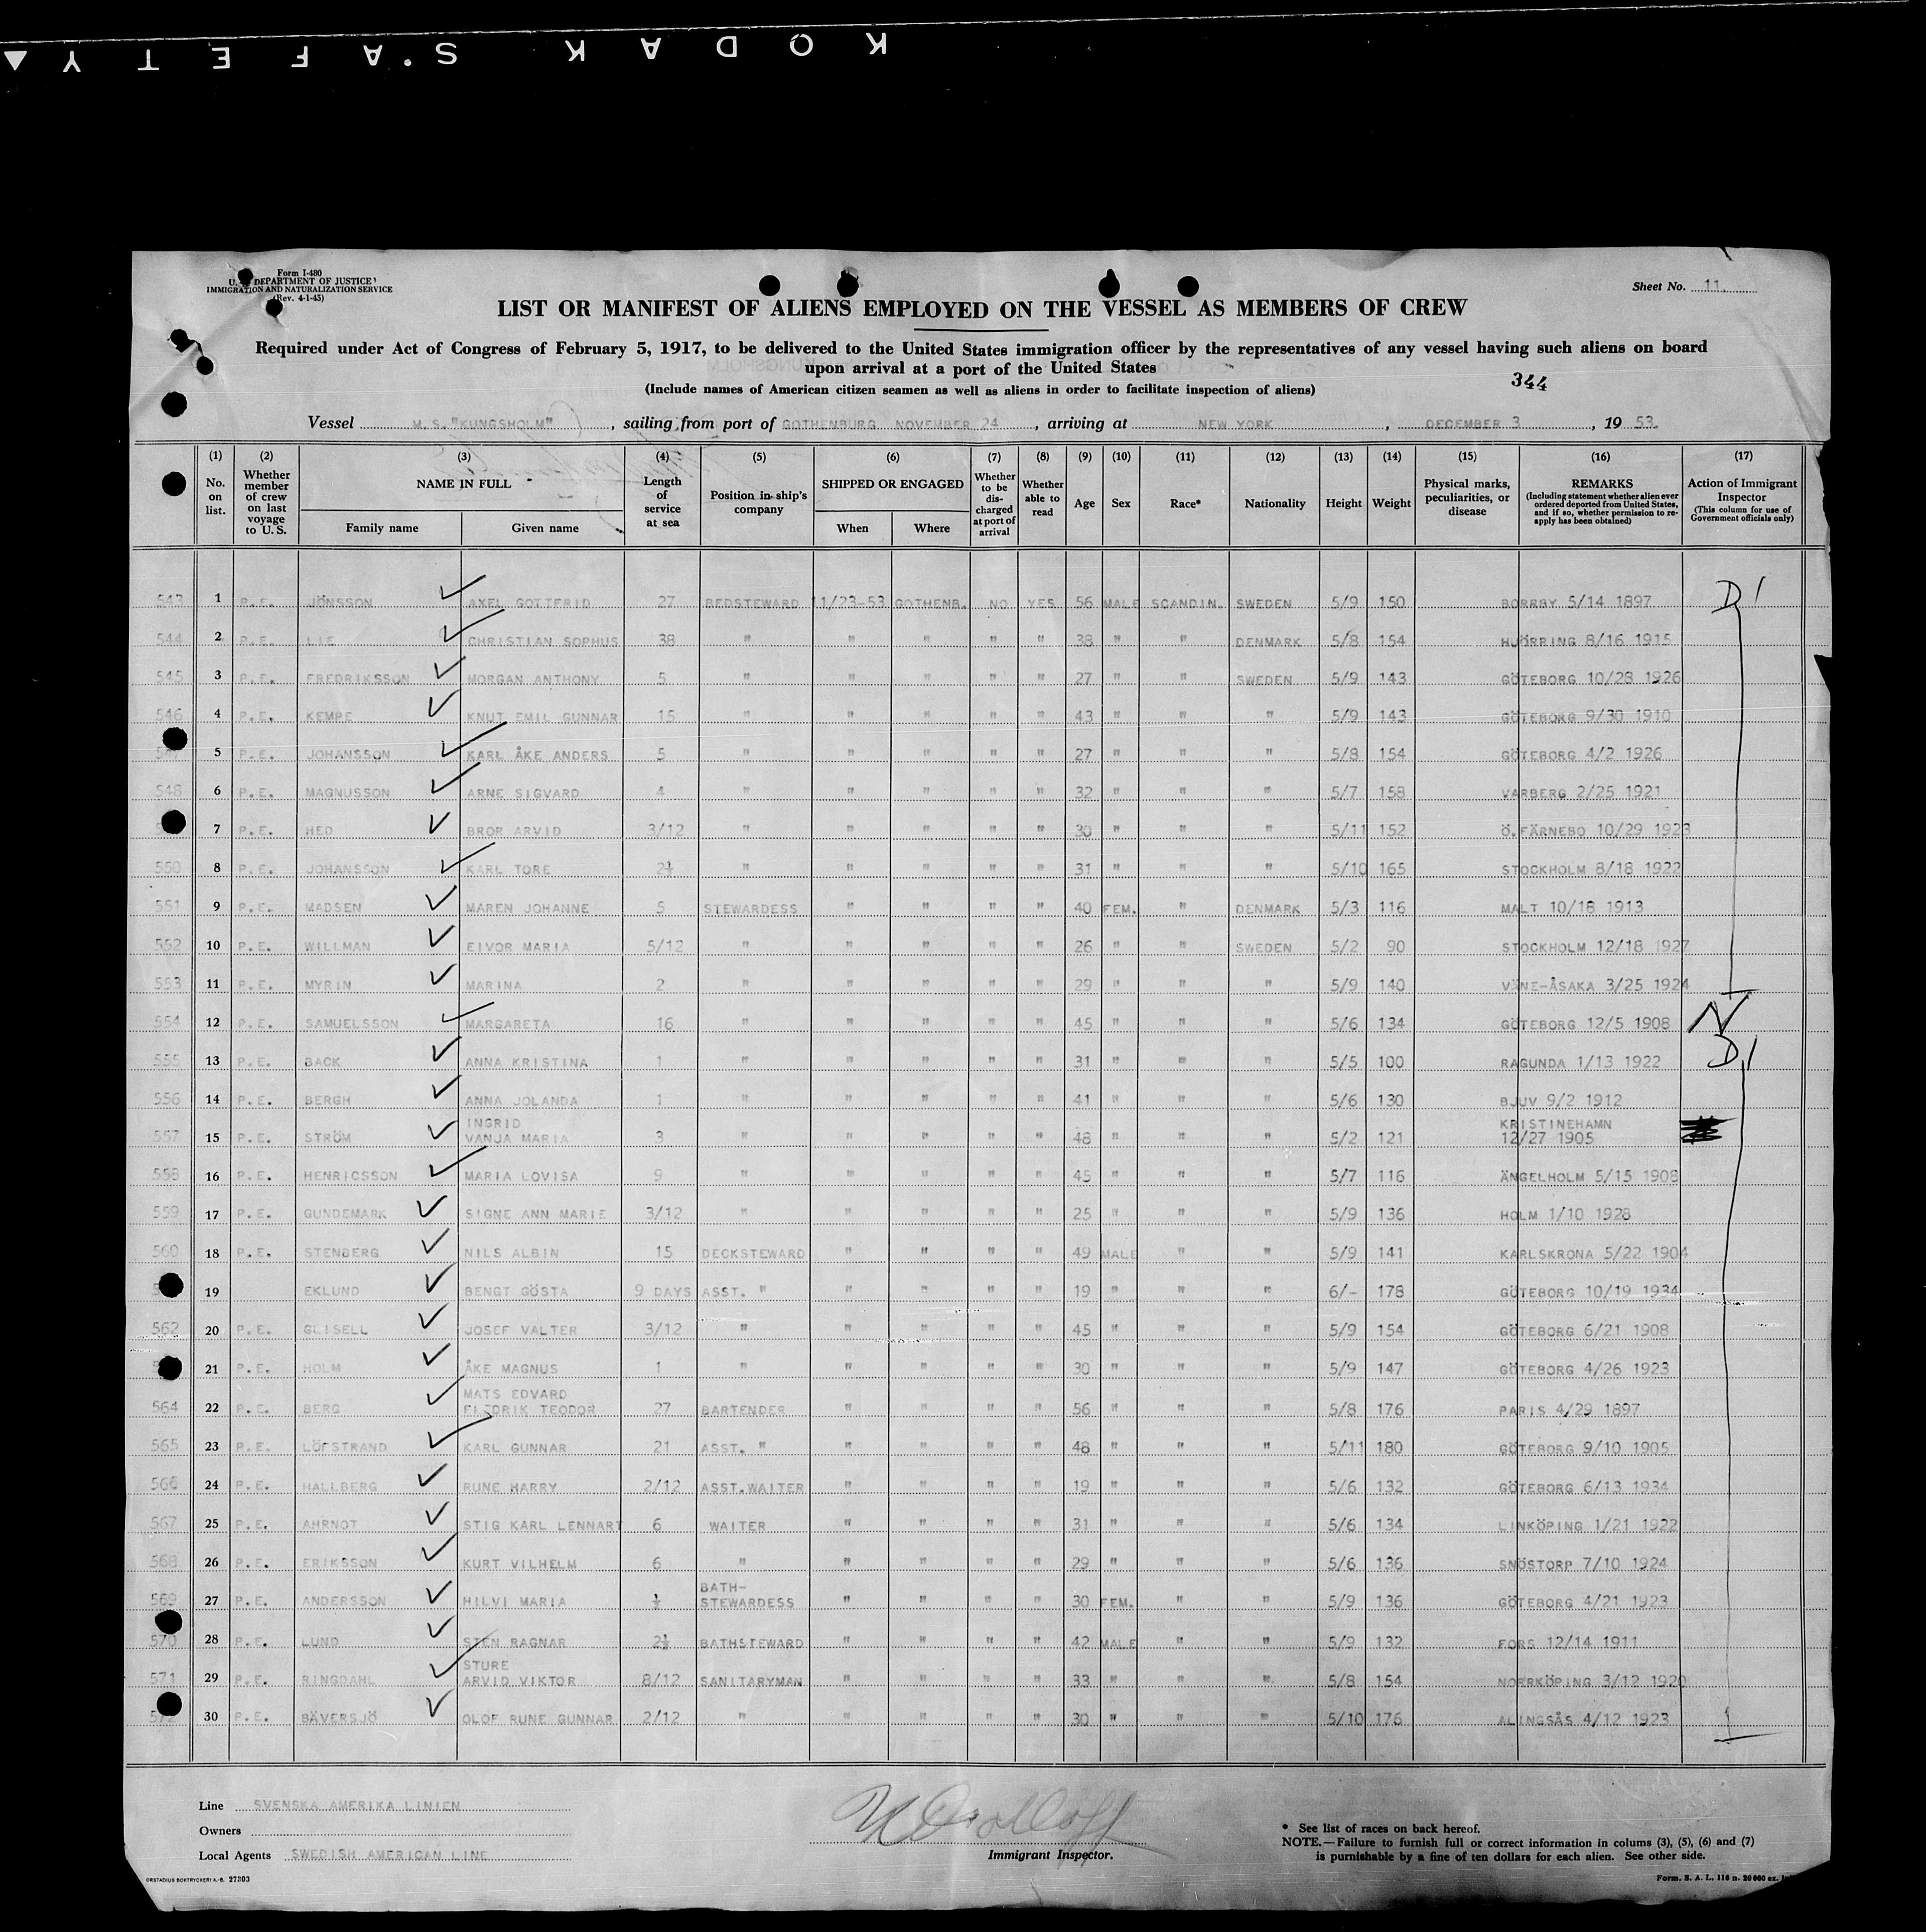 KODAK SAFETY
Form I-480
U. S. DEPARTMENT OF JUSTICE
IMMIGRATION AND NATURALIZATION SERVICE
(Rev. 4-1-45)
Sheet No. 11.
LIST OR MANIFEST OF ALIENS EMPLOYED ON THE VESSEL AS MEMBERS OF CREW
Required under Act of Congress of February 5, 1917, to be delivered to the United States immigration officer by the representatives of any vessel having such aliens on board
upon arrival at a port of the United States
(Include names of American citizen seamen as well as aliens in order to facilitate inspection of aliens)
344
Vessel M.S."KUNGSHOLM", sailing from port of GOTHENBURG NOVEMBER 24, arriving at NEW YORK, DECEMBER 3, 19 53.
(1) (2) (3) (4) (5) (6) (7) (8) (9) (10) (11) (12) (13) (14) (15) (16) (17)
No. on list. Whether member of crew on last voyage to U.S. NAME IN FULL Family name Given name Length of service at sea Position in ship's company SHIPPED OR ENGAGED When Where Whether to be discharged at port of arrival Whether able to read Age Sex Race* Nationality Height Weight Physical marks, peculiarities, or disease REMARKS (Including statement whether alien ever ordered deported from United States, and if so, whether permission to re-apply has been obtained) Action of Immigrant Inspector (This column for use of Government officials only)
543 1 P.E. JÖNSSON AXEL GOTTFRID 27 BEDSTEWARD 11/23-53 GOTHENB. NO YES 56 MALE SCANDIN. SWEDEN 5/9 150 BORRBY 5/14 1897 D1
544 2 P.E. LIE CHRISTIAN SOPHUS 38 " " " " " 38 " " DENMARK 5/8 154 HJÖRRING 8/16 1915
545 3 P.E. FREDRIKSSON MORGAN ANTHONY 5 " " " " " 27 " " SWEDEN 5/9 143 GÖTEBORG 10/28 1926
546 4 P.E. KEMPE KNUT EMIL GUNNAR 15 " " " " " 43 " " " 5/9 143 GÖTEBORG 9/30 1910
5 P.E. JOHANSSON KARL ÅKE ANDERS 5 " " " " " 27 " " " 5/8 154 GÖTEBORG 4/2 1926
548 6 P.E. MAGNUSSON ARNE SIGVARD 4 " " " " " 32 " " " 5/7 158 VARBERG 2/25 1921
7 P.E. HED BROR ARVID 3/12 " " " " " 30 " " " 5/11 152 Ö.FÄRNEBO 10/29 1923
550 8 P.E. JOHANSSON KARL TORE 2½ " " " " " 31 " " " 5/10 165 STOCKHOLM 8/18 1922
551 9 P.E. MADSEN MAREN JOHANNE 5 STEWARDESS " " " " 40 FEM. " DENMARK 5/3 116 MALT 10/18 1913
552 10 P.E. WILLMAN EIVOR MARIA 5/12 " " " " " 26 " " SWEDEN 5/2 90 STOCKHOLM 12/18 1927
553 11 P.E. MYRIN MARINA 2 " " " " " 29 " " " 5/9 140 VÄNE-ÅSAKA 3/25 1924
554 12 P.E. SAMUELSSON MARGARETA 16 " " " " " 45 " " " 5/6 134 GÖTEBORG 12/5 1908 N
555 13 P.E. BACK ANNA KRISTINA 1 " " " " " 31 " " " 5/5 100 RAGUNDA 1/13 1922 D1
556 14 P.E. BERGH ANNA JOLANDA 1 " " " " " 41 " " " 5/6 130 BJUV 9/2 1912
INGRID KRISTINEHAMN
557 15 P.E. STRÖM VANJA MARIA 3 " " " " " 48 " " " 5/2 121 12/27 1905
558 16 P.E. HENRICSSON MARIA LOVISA 9 " " " " " 45 " " " 5/7 116 ÄNGELHOLM 5/15 1908
559 17 P.E. GUNDEMARK SIGNE ANN MARIE 3/12 " " " " " 25 " " " 5/9 136 HOLM 1/10 1928
560 18 P.E. STENBERG NILS ALBIN 15 DECKSTEWARD " " " " 49 MALE " " 5/9 141 KARLSKRONA 5/22 1904
19 EKLUND BENGT GÖSTA 9 DAYS ASST. " " " " " 19 " " " 6/- 178 GÖTEBORG 10/19 1934
562 20 P.E. GLISELL JOSEF VALTER 3/12 " " " " " 45 " " " 5/9 154 GÖTEBORG 6/21 1908
21 P.E. HOLM ÅKE MAGNUS 1 " " " " " 30 " " " 5/9 147 GÖTEBORG 4/26 1923
MATS EDVARD
564 22 P.E. BERG FREDRIK TEODOR 27 BARTENDER " " " " 56 " " " 5/8 176 PARIS 4/29 1897
565 23 P.E. LÖFSTRAND KARL GUNNAR 21 ASST. " " " " " 48 " " " 5/11 180 GÖTEBORG 9/10 1905
566 24 P.E. HALLBERG RUNE HARRY 2/12 ASST.WAITER " " " " 19 " " " 5/6 132 GÖTEBORG 6/13 1934
567 25 P.E. AHRNOT STIG KARL LENNART 6 WAITER " " " " 31 " " " 5/6 134 LINKÖPING 1/21 1922
568 26 P.E. ERIKSSON KURT VILHELM 6 " " " " " 29 " " " 5/6 136 SNÖSTORP 7/10 1924
BATH-
569 27 P.E. ANDERSSON HILVI MARIA ½ STEWARDESS " " " " 30 FEM. " " 5/9 136 GÖTEBORG 4/21 1923
570 28 P.E. LUND STEN RAGNAR 2½ BATHSTEWARD " " " " 42 MALE " " 5/9 132 FORS 12/14 1911
STURE
571 29 P.E. RINGDAHL ARVID VIKTOR 8/12 SANITARYMAN " " " " 33 " " " 5/8 154 NORRKÖPING 3/12 1920
572 30 P.E. BÄVERSJÖ OLOF RUNE GUNNAR 2/12 " " " " " 30 " " " 5/10 176 ALINGSÅS 4/12 1923
Line SVENSKA AMERIKA LINIEN
Owners
Local Agents SWEDISH AMERICAN LINE
Immigrant Inspector.
* See list of races on back hereof.
NOTE.—Failure to furnish full or correct information in colums (3), (5), (6) and (7)
is punishable by a fine of ten dollars for each alien. See other side.
ORSTADIUS BOKTRYCKERI A.-B. 27303
Form. S. A. L. 116 n. 20 000 ex.